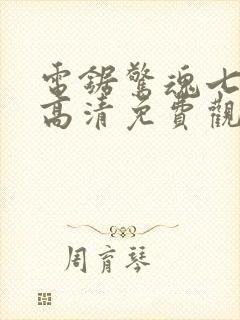 電鋸驚魂七
高清免費觀
周育琴